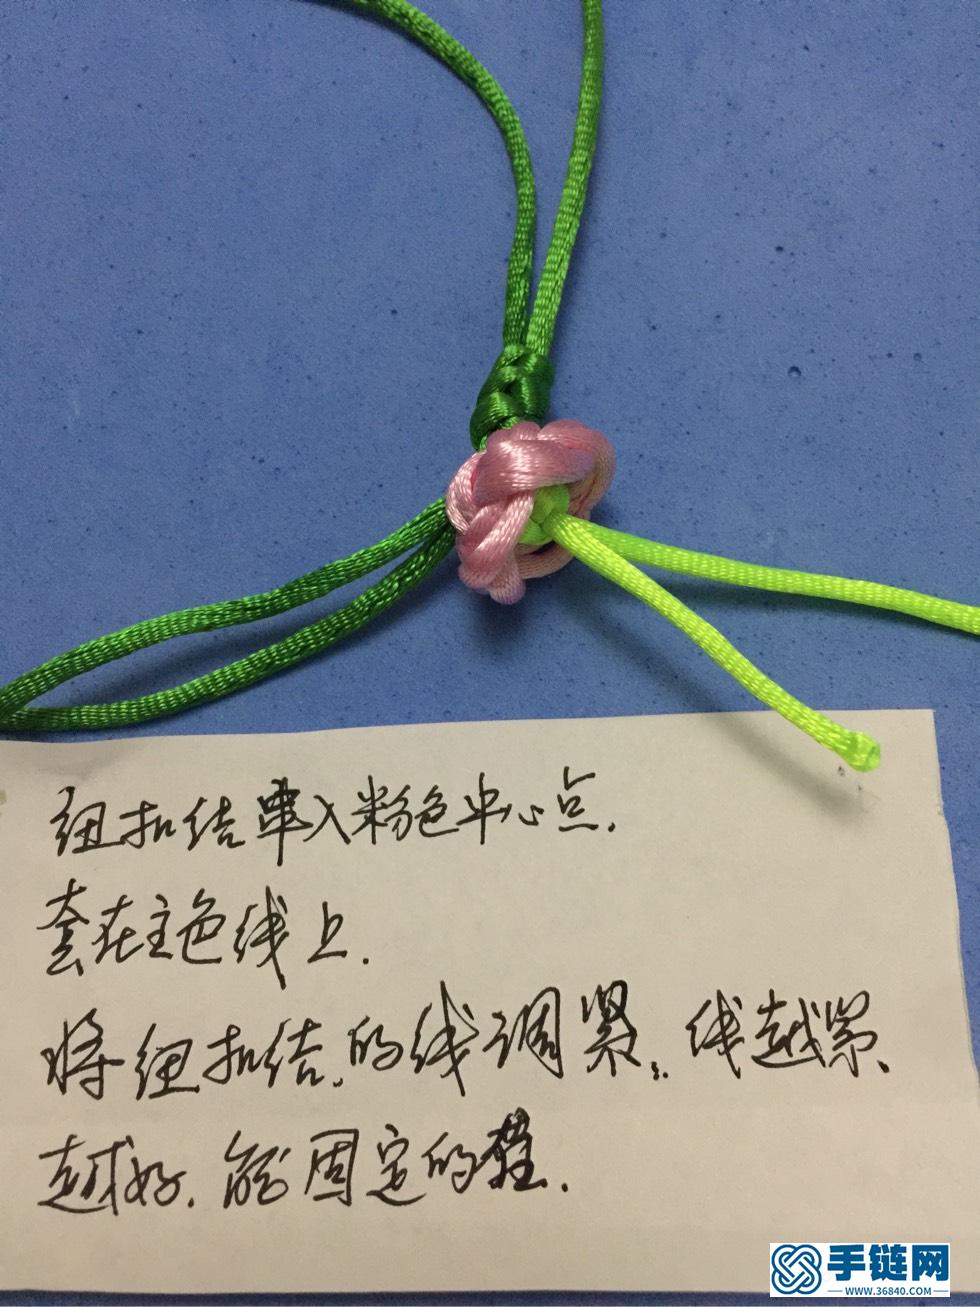 纽扣结串入粉色中心点.
套在主色线上.
将纽扣结.的线调紧.线越紧、
越好.能固定的
手链网
WWW.36840.COM